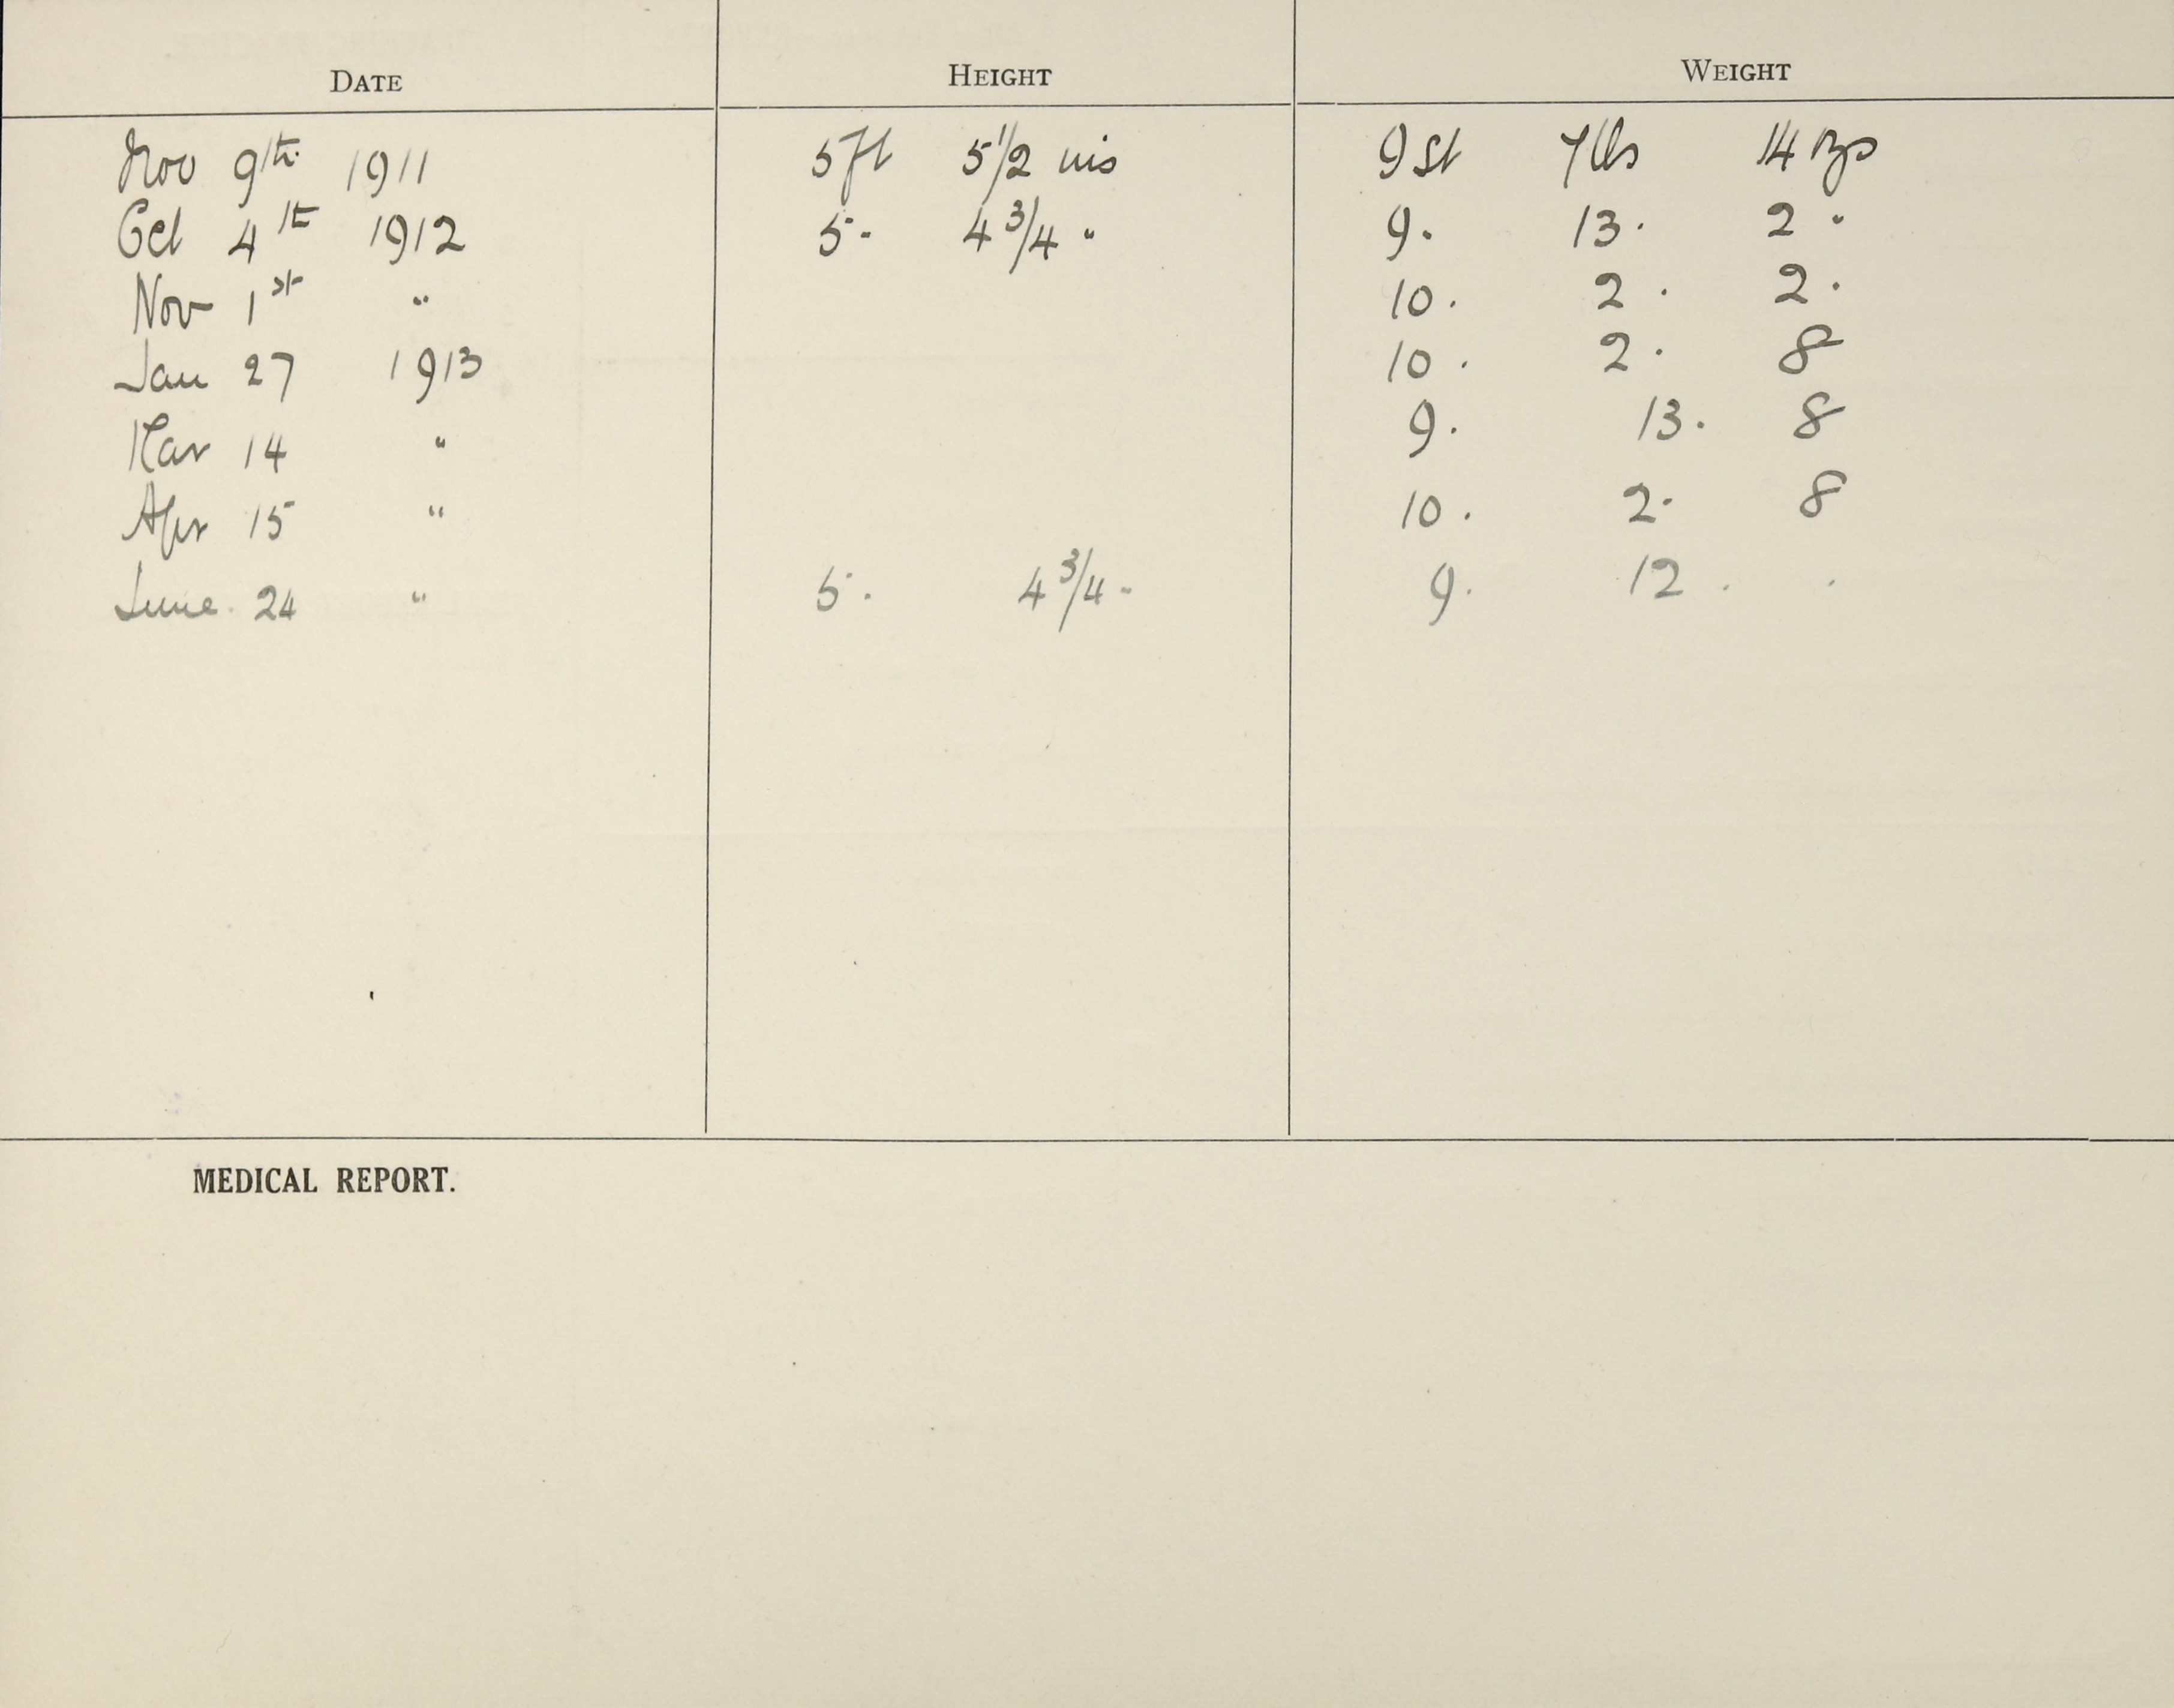 DATE HEIGHT WEIGHT
Nov 9th 1911 5 ft 5 1/2 ins 9 st 7 lbs 14 ozs
Oct 4th 1912 5 - 4 3/4 " 9. 13. 2 "
Nov 1st " 10. 2. 2.
Jan 27 1913 10. 2. 8
Mar 14 " 9. 13. 8
Apr 15 " 10. 2. 8
June 24 " 5. 4 3/4 " 9. 12. .
MEDICAL REPORT.